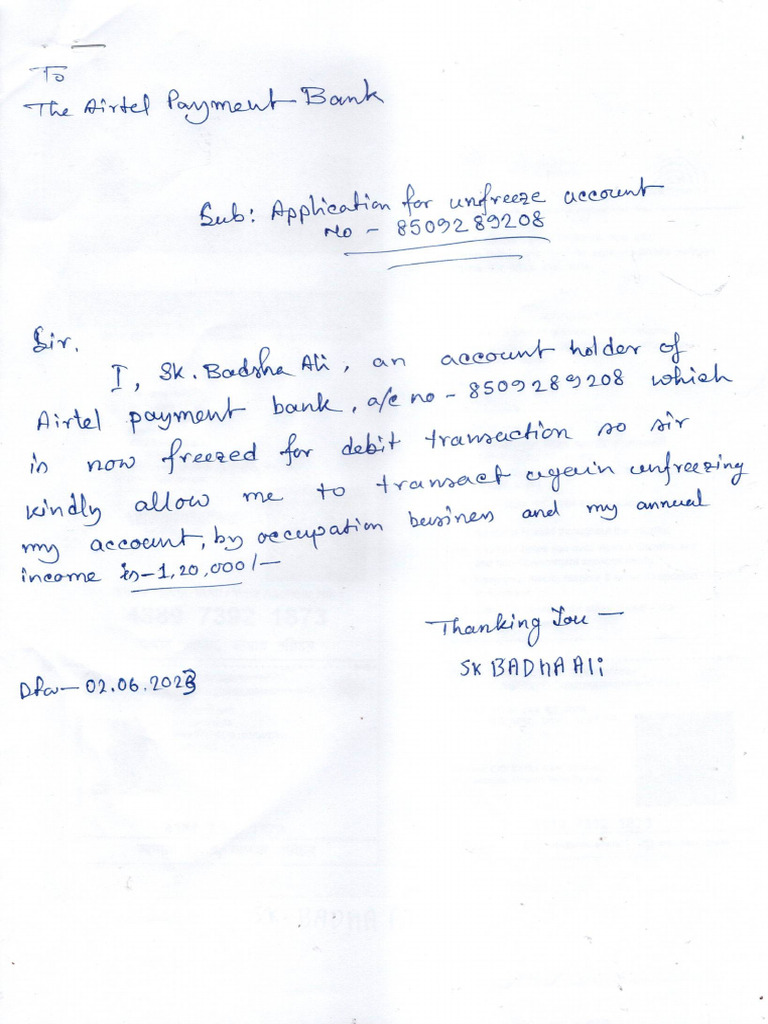 To
The Airtel Payment Bank
Sub: Application for unfreeze account
No - 8509289208
Sir.
I, Sk. Badsha Ali, an account holder of
Airtel payment bank, a/c no - 8509289208 which
is now freezed for debit transaction so sir
kindly allow me to transact again unfreezing
my account, by occupation business and my annual
income is - 1,20,000/-
Thanking You -
SK BADHA Ali
- 02.06.2023